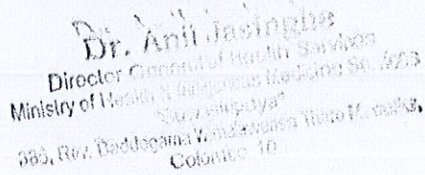 Dr. Anil Jasinghe
Director General of Health Services
Ministry of Health & Indigenous Medicine
385, Rev. Baddegama Wimalawansa Thero
Colombo 10.